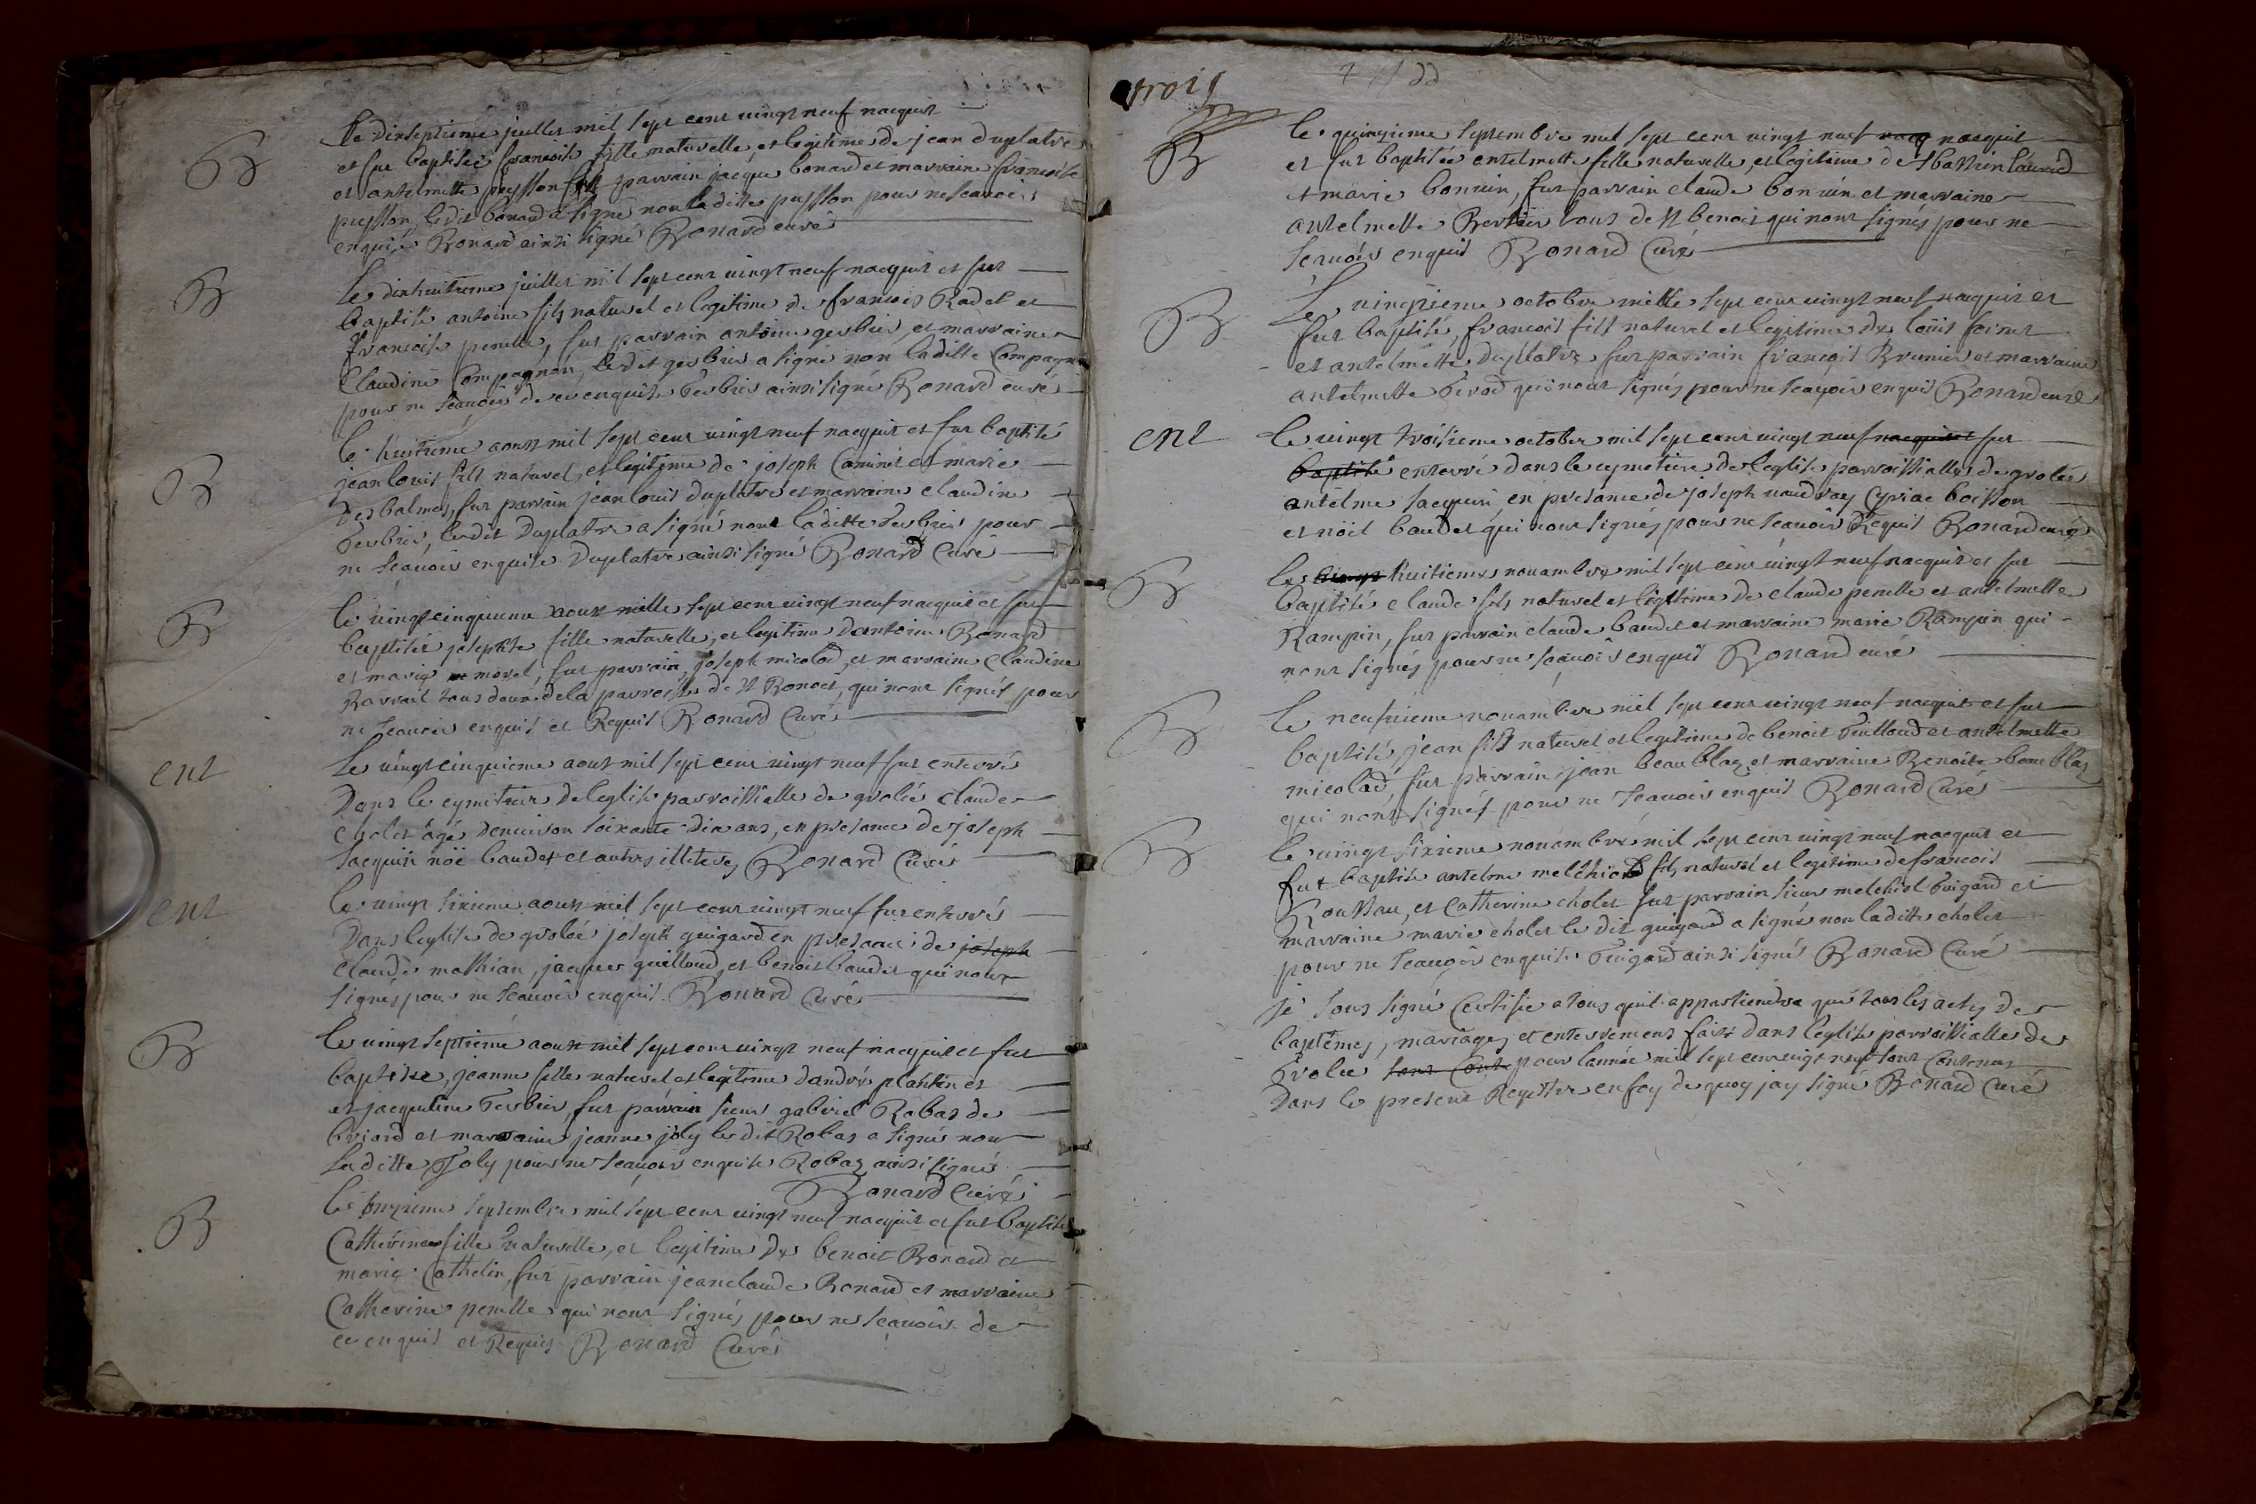 B
Le dixseptieme juillet mil sept cent vingt neuf nacquit
et fut baptisée francoise fille naturelle et legitime de jean duplatre
et antelmette peysson fut parrain jacque bonard et marraine francoise
peysson, ledit bonard a signé non laditte peysson pour ne scavoir
enquise Bonard ainsi signé Bonard curé
B
Le dixhuitieme juillet mil sept cent vingt neuf nacquit et fut
baptisé antoine fils naturel et legitime de francois Radet et
francoise perelle, fut parrain antoine gerbier, et marraine
Claudine Compagnon, ledit gerbier a signé non laditte Compagnon
pour ne scavoir de ce enquise Gerbier ainsi signé Bonard curé
B
le huitieme aoust mil sept cent vingt neuf nacquit et fut baptisé
jean louis fils naturel, et legitime de joseph Caminet et marie
Desbalmes, fut parrain jean louis duplatre et marraine claudine
Gerbier, ledit Duplatre a signé nont laditte Gerbier pour
ne scavoir enquise Duplatre ainsi signé Bonard Curé
B
le vingtcinquieme aoust mille sept cent vingt neuf nacquit et fut
baptisée josephte fille naturelle, et legitime dantoine Bonard
et marie morel, fut parrain, joseph micolad, et marraine Claudine
Ravrait tous deux de la parroisse de St Benoit, qui nont signés pour
ne scavoir enquis et Requis Bonard Curé
ent
Le vingtcinquieme aoust mil sept cent vingt neuf fut enterré
Dans le cymetiere de leglise parroissialle de grolée claude
cholet âgé denviron soixante dix ans, en presance de joseph
Jacquin noë baudet et autres illiteres Bonard Curé
ent
le vingt sixieme aoust mil sept cent vingt neuf fut enterré
Dans leglise de grolée joseph guigard en presance de joseph
claude mathian, jacques guilloud, et benoit baudet qui nont
signés pour ne scavoir enquis Bonard Curé
B
Le vingt septieme aoust mil sept cent vingt neuf nacquit et fut
baptisée, jeanne fille naturel et legitime dandré plantin et
et jacqueline Gerbier, fut parrain sieur gabriel Robaz de
briord et marraine jeanne joly ledit Robaz a signé non
laditte Joly pour ne scavoir enquise Robaz ainsi signé
Bonard Curé
B
le septembre mil sept cent vingt neuf nacquit et fut baptisée
Catherine fille naturelle, et legitime de benoit Bonard et
marie Cathelin, fut parrain jean claude Bonard et marraine
Catherine perelle qui nont signés pour ne scavoir de
ce enquis et Requis Bonard Curé
trois
B
le quinzieme septembre mil sept cent vingt neuf nacq nacquit
et fut baptisée antelmette fille naturelle, et legitime de Sbastien laurend
et marie bonnin, fut parrain claude bonnin et marraine
antelmette Bertier tous de St benoit qui nont signés pour ne
scavoir enquis Bonard Curé
B
Le octobre mille sept cent vingt neuf nacquit et
fut baptisé, francois fils naturel et legitime de loüis
et antelmette Duplatre fut parrain françois Brunier et marraine
antelmette Berod qui nont signés pour ne scavoir enquis Bonard curé
ent
le vingt troisieme october mil sept cent vingt neuf nacquit et fut
baptisé enterré dans le cymetiere de leglise parroissialle de grolée
antelme Jacquin en presance de joseph naudray Cyriac boisson
et nöel baudet qui nont signés pour ne scavoir Requis Bonard curé
B
le vingt huitieme novambre mil sept cent vingt neuf nacquit et fut
baptisé claude fils naturel et legitime de claude perelle et antelmette
Rampin, fut parrain claude baudet et marraine marie Rampin qui
nont signés pour ne scavoir enquis Bonard curé
B
le neufvieme novambre mil sept cent vingt neuf nacquit et fut
baptisé, jean fils naturel et legitime de benoit Guilloud et antelmette
micolad, fut parrain jean beaublaz et marraine Benoite beaublaz
qui nont signés pour ne scavoir enquis Bonard Curé
B
le vingt sixieme novambre mil sept cent vingt neuf nacquit et
fut baptisé antelme melchiord fils naturel et legitime de francois
Rousseau, et Catherine cholet fut parrain sieur melchiol Guigard et
marraine marie cholet le dit guigard a signé non laditte cholet
pour ne scavoir enquise Guigard ainsi signé Bonard Curé
je sous signé Certifie a tous quil appartiendra que tous les actes de
baptêmes, mariages et enterremens faits dans leglise parroissialle de
Grolee sont Cont pour lannée mil sept cent vingt neuf sont Contenus
Dans le present Registre enfoy de quoy jay signé Bonard Curé